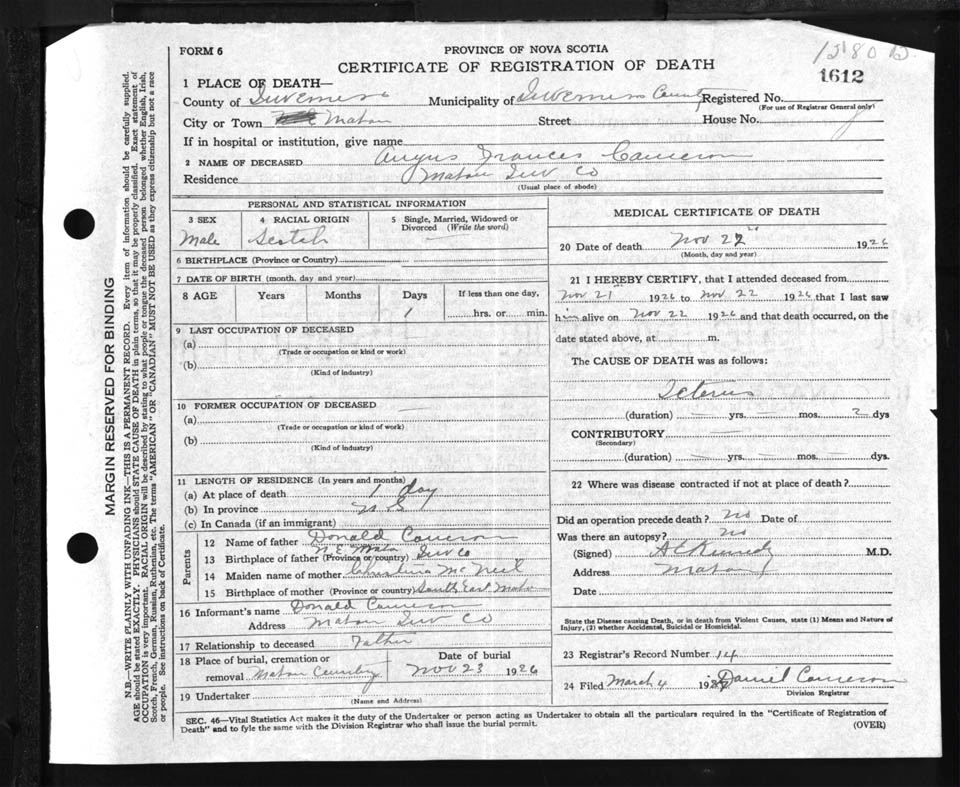 FORM 6
PROVINCE OF NOVA SCOTIA
CERTIFICATE OF REGISTRATION OF DEATH
1612
1 PLACE OF DEATH—
County of Inverness Municipality of Inverness County Registered No.
(For use of Registrar General only)
City or Town Mabou Street House No.
If in hospital or institution, give name
2 NAME OF DECEASED Angus Frances Cameron
Residence Mabou Inv Co
(Usual place of abode)
PERSONAL AND STATISTICAL INFORMATION
3 SEX
Male
4 RACIAL ORIGIN
Scotch
5 Single, Married, Widowed or Divorced (Write the word)
6 BIRTHPLACE (Province or Country)
7 DATE OF BIRTH (month, day and year)
8 AGE Years Months Days If less than one day,
1 hrs. or min.
9 LAST OCCUPATION OF DECEASED
(a)
(Trade or occupation or kind or work)
(b)
(Kind of industry)
10 FORMER OCCUPATION OF DECEASED
(a)
(Trade or occupation or kind of work)
(b)
(Kind of industry)
11 LENGTH OF RESIDENCE (In years and months)
(a) At place of death 1 day
(b) In province N S
(c) In Canada (if an immigrant)
Parents
12 Name of father Donald Cameron
13 Birthplace of father (Province or country) N E Mabou Inv Co
14 Maiden name of mother Christina McNeil
15 Birthplace of mother (Province or country) South East Mabou
16 Informant's name Donald Cameron
Address Mabou Inv Co
17 Relationship to deceased Father
18 Place of burial, cremation or Date of burial
removal Mabou Nov 23 1926
19 Undertaker
(Name and Address)
MEDICAL CERTIFICATE OF DEATH
20 Date of death Nov 22 1926
(Month, day and year)
21 I HEREBY CERTIFY, that I attended deceased from
Nov 21 1926 to Nov 22 1926 that I last saw
him alive on Nov 22 1926 and that death occurred, on the
date stated above, at m.
The CAUSE OF DEATH was as follows:
Icterus
(duration) yrs. mos. 2 dys
CONTRIBUTORY
(Secondary)
(duration) yrs. mos. dys.
22 Where was disease contracted if not at place of death?
Did an operation precede death? no Date of
Was there an autopsy? no
(Signed) A C Kennedy M.D.
Address Mabou
Date
State the Disease causing Death, or in death from Violent Causes, state (1) Means and Nature of
Injury, (2) whether Accidental, Suicidal or Homicidal.
23 Registrar's Record Number 14
24 Filed March 4 Daniel Cameron
Division Registrar
SEC. 46—Vital Statistics Act makes it the duty of the Undertaker or person acting as Undertaker to obtain all the particulars required in the "Certificate of Registration of
Death" and to fyle the same with the Division Registrar who shall issue the burial permit.
(OVER)
MARGIN RESERVED FOR BINDING
N.B.—WRITE PLAINLY WITH UNFADING INK—THIS IS A PERMANENT RECORD. Every item of information should be carefully supplied.
AGE should be stated EXACTLY. PHYSICIANS should STATE CAUSE OF DEATH in plain terms, so that it may be properly classified. Exact statement of
OCCUPATION is very important. RACIAL ORIGIN will be described by stating to what people or tongue the deceased person belonged whether English, Irish,
Scotch, French, German, Russian, Ruthenian, etc. The terms "AMERICAN" OR "CANADIAN" MUST NOT BE USED as they express citizenship but not a race
or people. See instructions on back of Certificate.